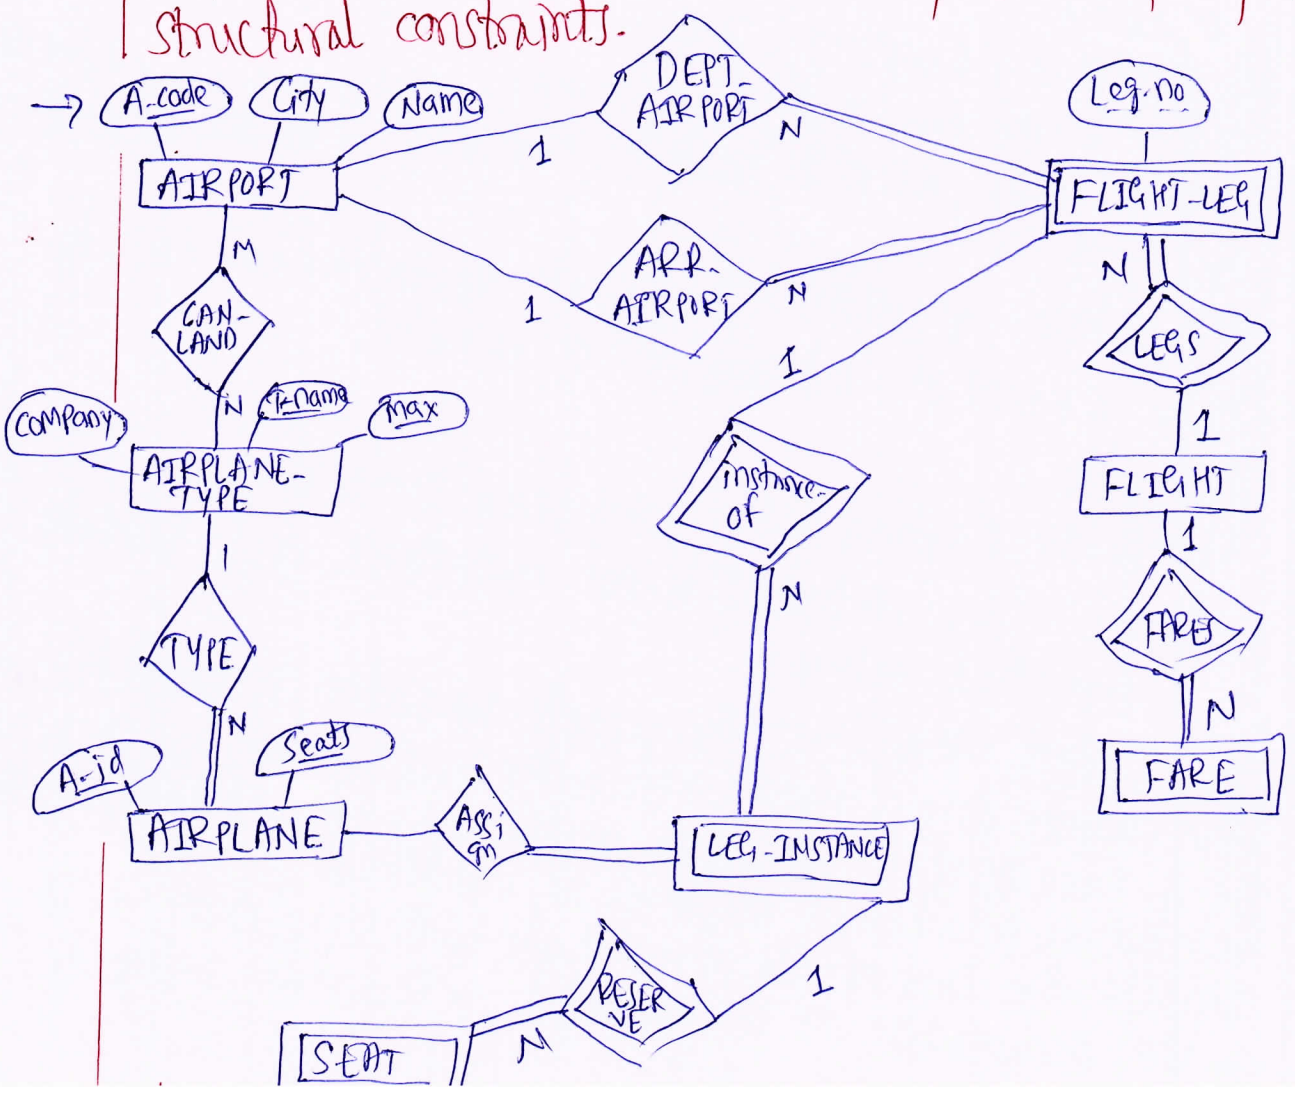 structural constraints.
A-code City Name
DEPT-
AIRPORT
Leg-no
1
N
AIRPORT
FLIGHT-LEG
M
ARR-
AIRPORT
1
N
N
CAN-
LAND
LEGS
1
N
T-name
Max
Company
1
AIRPLANE-
TYPE
instance-
of
FLIGHT
1
1
N
TYPE
FARES
N
N
A-id
Seats
FARE
AIRPLANE
Assi
gn
LEG-INSTANCE
RESER
VE
1
N
SEAT